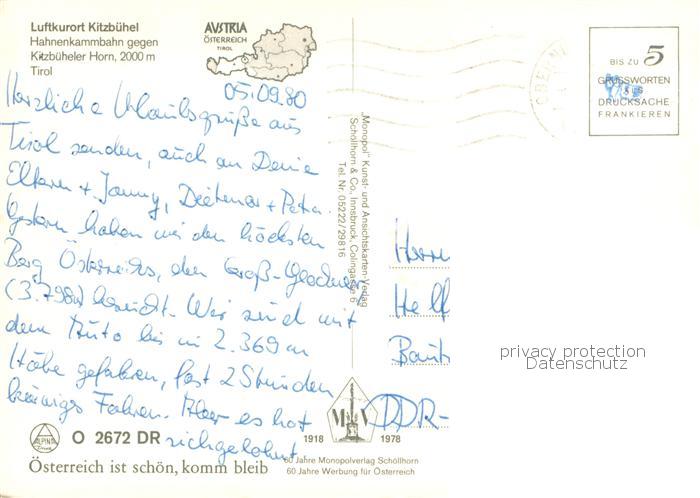 Luftkurort Kitzbühel
Hahnenkammbahn gegen
Kitzbüheler Horn, 2000 m
Tirol
AUSTRIA
ÖSTERREICH
TIROL
05.09.80
Herzliche Urlaubsgrüße aus
Tirol senden, auch an Deine
Eltern + Jonny, Dietmar + Petra.
Gestern haben wir den höchsten
Berg Österreichs, den Groß-Glockner
(3.798m) besucht. Wir sind mit
dem Auto bis in 2.369m
Höhe gefahren, fast 2 Stunden
Fahren. Aber es hat
sich gelohnt
„Monopol" Kunst- und Ansichtskarten-Verlag
Schöllhorn & Co. Innsbruck, Colingasse 6
Tel. Nr. 05222/29816
BIS ZU 5
GRUSSWORTEN
ALS
DRUCKSACHE
FRANKIEREN
Herrn
Helf
Baut
DDR-
privacy protection
Datenschutz
ALPINA
O 2672 DR
Österreich ist schön, komm bleib
1918 M V 1978
60 Jahre Monopolverlag Schöllhorn
60 Jahre Werbung für Österreich